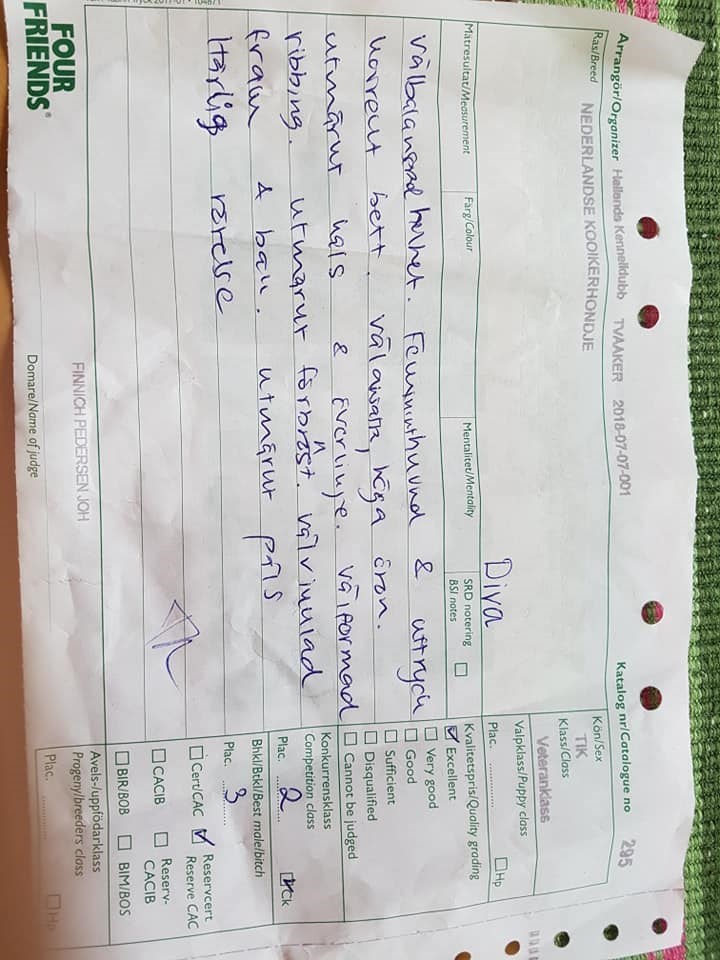 Arrangör/Organizer Hallands Kennelklubb TVAAKER 2018-07-07-001
Katalog nr/Catalogue no 295
Ras/Breed
NEDERLANDSE KOOIKERHONDJE
Kön/Sex
TIK
Klass/Class
Veteranklass
Diva
Valpklass/Puppy class
Plac. ............ Hp
Mätresultat/Measurement
Färg/Colour
Mentalitet/Mentality
SRD notering
BSI notes
välbalanserad helhet. Feminint huvud & uttryck
korrekt bett. välansatta, höga öron.
utmärkt hals & överlinje. välformad
ribbing. utmärkt förbröst. välvinklad
fram & bak. utmärkt päls
Härlig rörelse
Kvalitetspris/Quality grading
Excellent
Very good
Good
Sufficient
Disqualified
Cannot be judged
Konkurrensklass
Competition class
Plac. 2 Ck
Bhkl/Btkl/Best male/bitch
Plac. 3
Cert/CAC Reservcert
Reserve CAC
CACIB Reserv-
CACIB
BIR/BOB BIM/BOS
Avels-/uppfödarklass
Progeny/breeders class
Plac. ............ Hp
FINNICH PEDERSEN JOH
Domare/Name of judge
FOUR
FRIENDS®